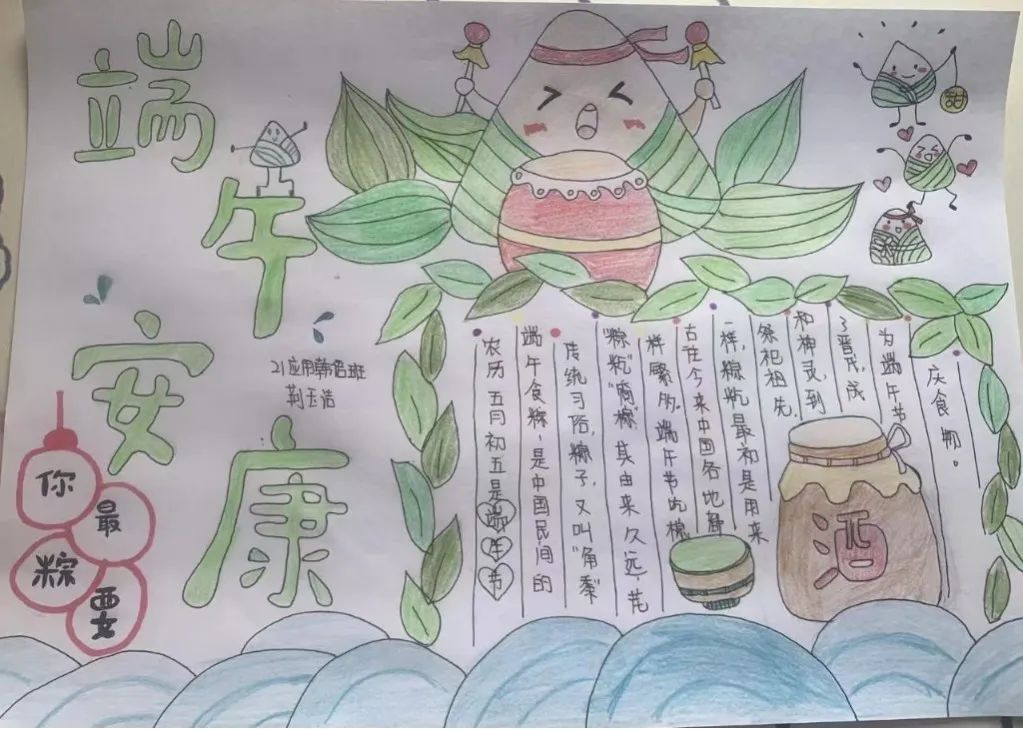 端午安康
21应用韩语班
你最粽要
甜
农历五月初五是端午节
端午食粽，是中国民间的
传统习俗，粽子，又叫“角黍”
“粽籺”“筒粽”其由来久远，花
样繁多。端午节吃粽
古往今来中国各地都
一样，粽籺最初是用来
祭祀祖先，
和神灵，到
了晋代，成
为端午节
庆食物。
酒